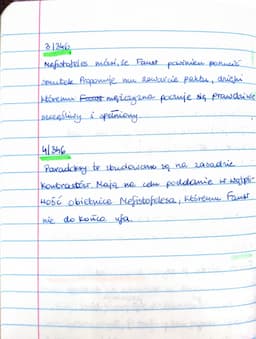 3/346
Mefistofeles mówi, że Faust powinien porzucić
smutek. Proponuje mu zawarcie paktu, dzięki
któremu mężczyzna poczuje się prawdziwie
szczęśliwy i spełniony.
4/346
Paradoksy te zbudowane są na zasadzie
kontrastów. Mają na celu poddanie w wątpli-
wość obietnice Mefistofelesa, któremu Faust
nie do końca ufa.